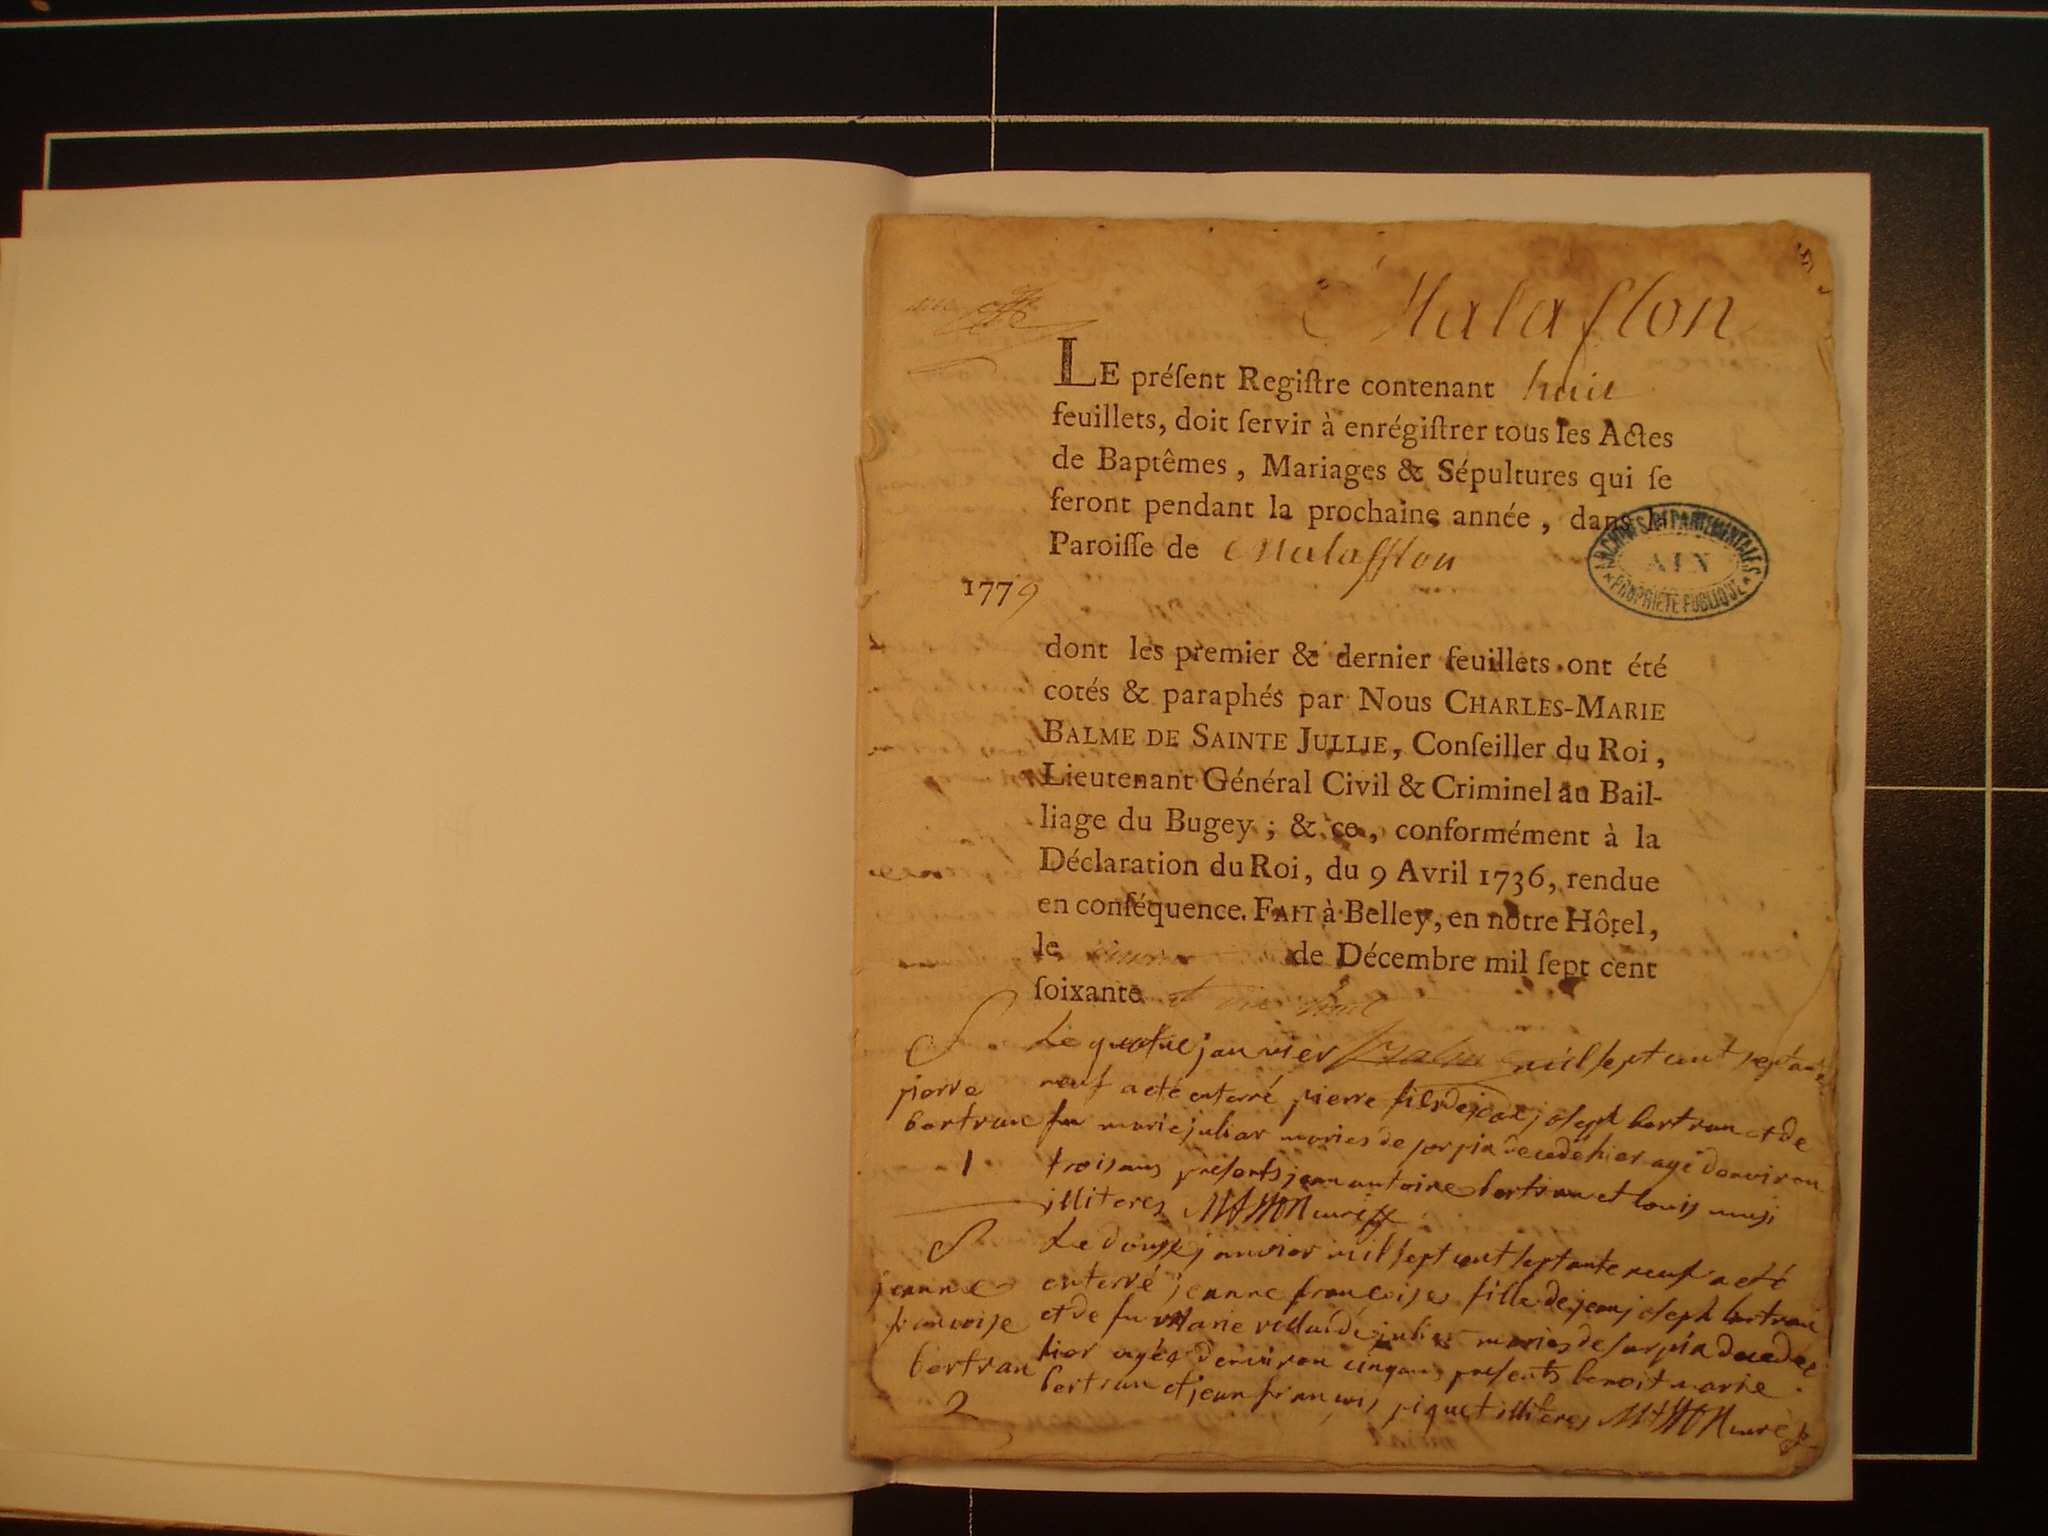 Malaflon
LE préſent Regiſtre contenant huit
feuillets, doit ſervir à enrégiſtrer tous les Actes
de Baptêmes, Mariages & Sépultures qui ſe
feront pendant la prochaine année, dans la
Paroiſſe de Malafflon
ARCHIVES DÉPARTEMENTALES
AIN
PROPRIÉTÉ PUBLIQUE
1779
dont les premier & dernier feuillets ont été
cotés & paraphés par Nous CHARLES-MARIE
BALME DE SAINTE JULLIE, Conſeiller du Roi,
Lieutenant Général Civil & Criminel au Bail-
liage du Bugey; & ce, conformément à la
Déclaration du Roi, du 9 Avril 1736, rendue
en conſéquence. FAIT à Belley, en notre Hôtel,
le de Décembre mil ſept cent
ſoixante et dix huit
S Le quatre janvier mil sept cent septante
pierre neuf a eté enterré pierre fils de joseph bertran et de
bertran fu marie juliar mariés de decedé hier agé d'environ
1 trois ans presents jean antoine bertran et louis
illiteres curé
S Le douze janvier mil sept cent septante neuf a eté
jeanne enterré jeanne françoise fille de jean joseph bertran
françoise et de fu Marie mariés de decedée
bertran hier agée d'environ cinq ans presents benoit marie
2 bertran et jean françois piquet illiteres curé